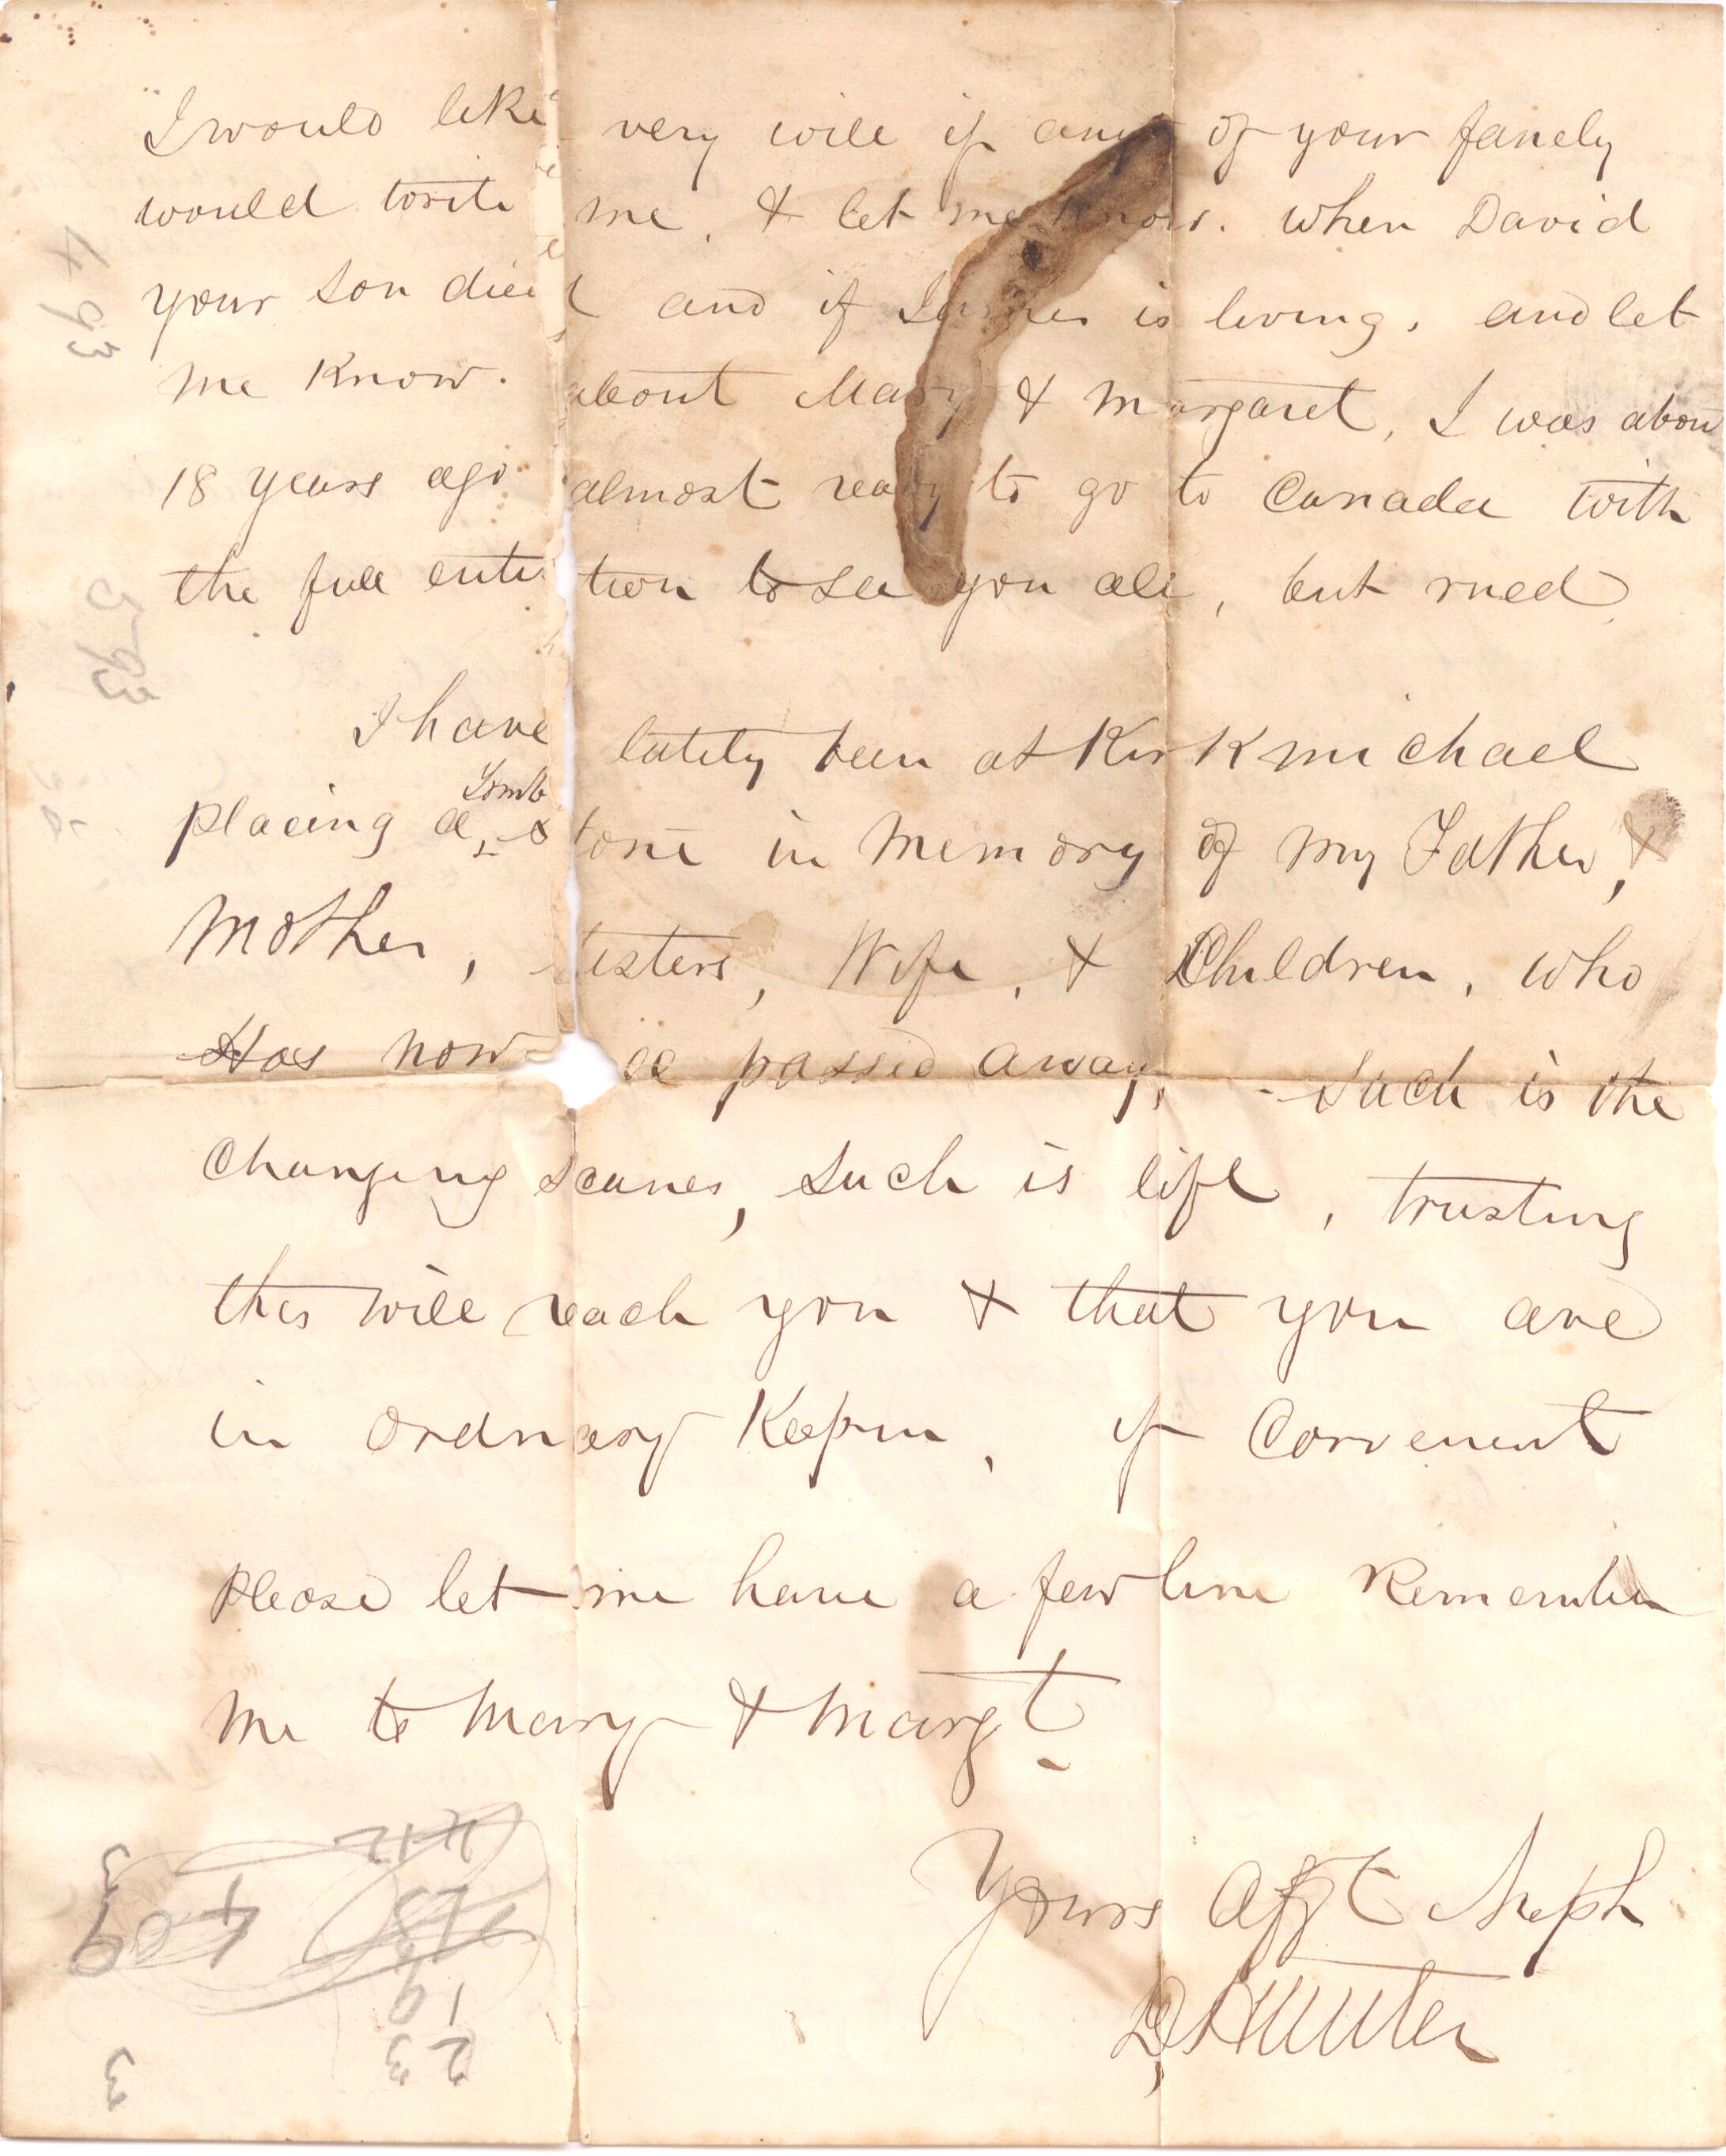 I would like very will if any of your famely
would write me, & let me know. when David
your son died and if James is living, and let
me Know. about Mary & Margaret, I was abou
18 years ago almost ready to go to Canada with
the full enti tion to see you all, but rued
I have lately been at Kirkmichael
placing a Tomb stone in Memory of my Father, &
Mother, sisters, Wife, & Children, who
Has now all passed away, - Such is the
Changing scanes, such is life, trusting
this will reach you & that you are
in ordnary Keepin, if Convenient
Please let me have a few line Remember
me to Mary & Margt
Yours Afft Neph
D, Hunter
493
593
412
19
23
3